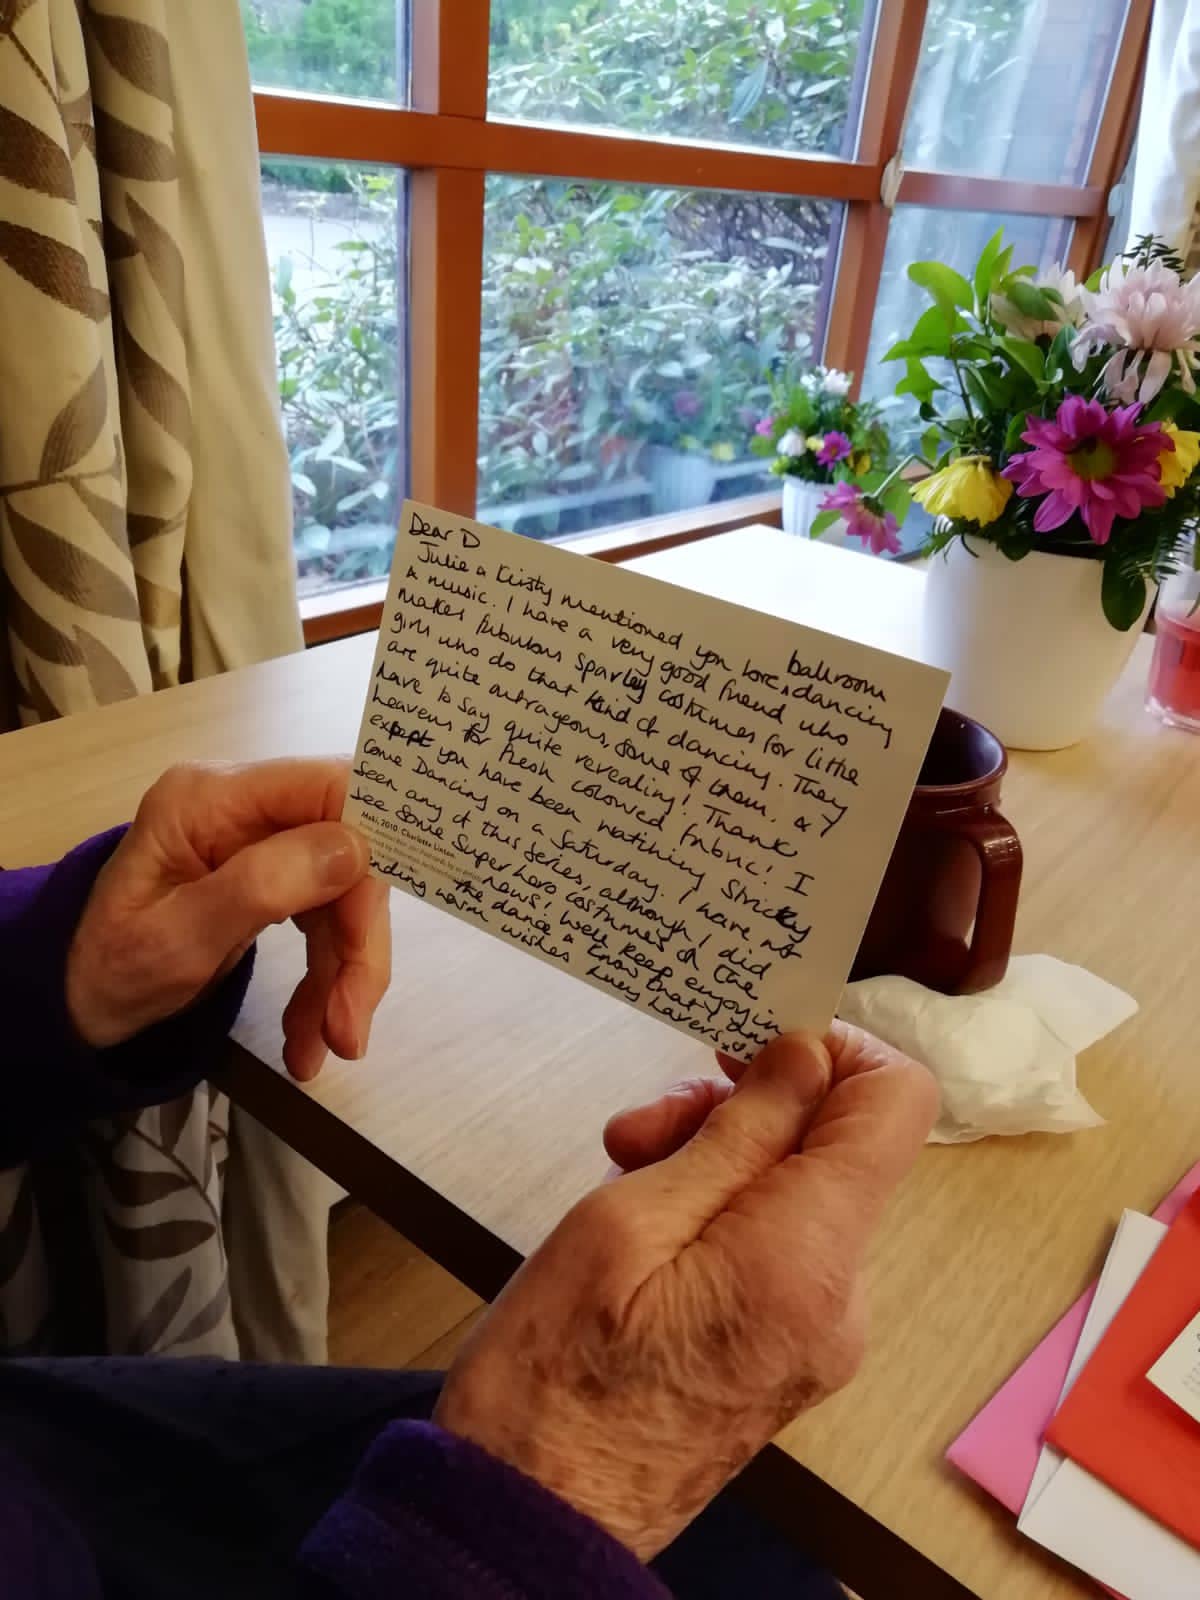 Dear D
Julie & Kirsty mentioned you love ballroom dancing
& music. I have a very good friend who
makes fabulous sparley costumes for little
girls who do that kind of dancing. They
are quite outrageous, some of them, & I
have to say quite revealing! Thank
heavens for flesh coloured fabric! I
expept you have been watching Strictly
Come Dancing on a Saturday. I have not
seen any of this series, although I did
see some Superhero costumes on the
news! Well keep enjoying
the dance & know that I am
sending warm wishes
Maki, 2010. Charlotte Linton.